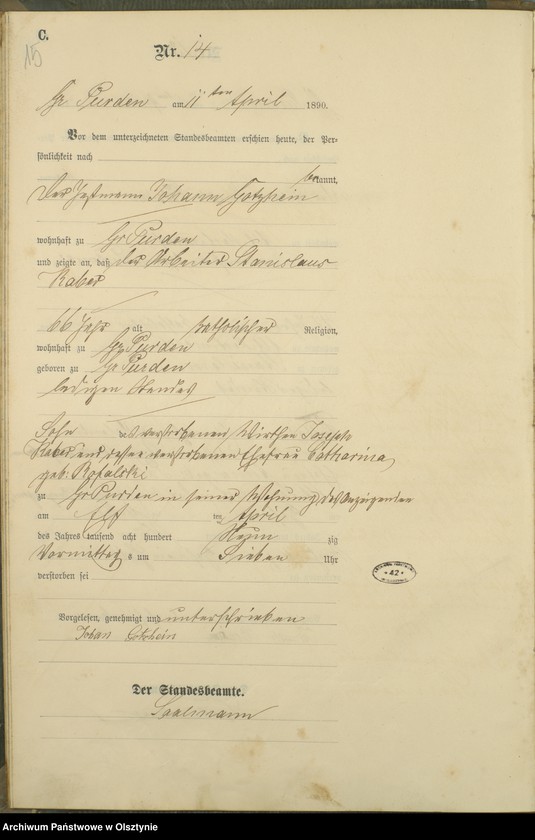 C.
15
Nr. 14
Gr Purden am 11ten April 1890.
Vor dem unterzeichneten Standesbeamten erschien heute, der Per-
sönlichkeit nach
bekannt,
der Johann Gotzhein
wohnhaft zu Gr Purden
und zeigte an, daß der Arbeiter Stanislaus
Kaber
66 Jahr alt katholischer Religion,
wohnhaft zu Gr Purden
geboren zu Gr Purden
ledigen Standes
Sohn des verstorbenen Wirthen Joseph
Kaber und dessen verstorbenen Ehefrau Catharina
geb: 
zu Gr Purden in seiner Wohnung des Anzeigenden
am Elf ten April
des Jahres tausend acht hundert Neun zig
Vormittag s um Sieben Uhr
verstorben sei
Vorgelesen, genehmigt und unterschrieben
Johan Gotzhein
Der Standesbeamte.
Saalmann
42
Archiwum Państwowe w Olsztynie